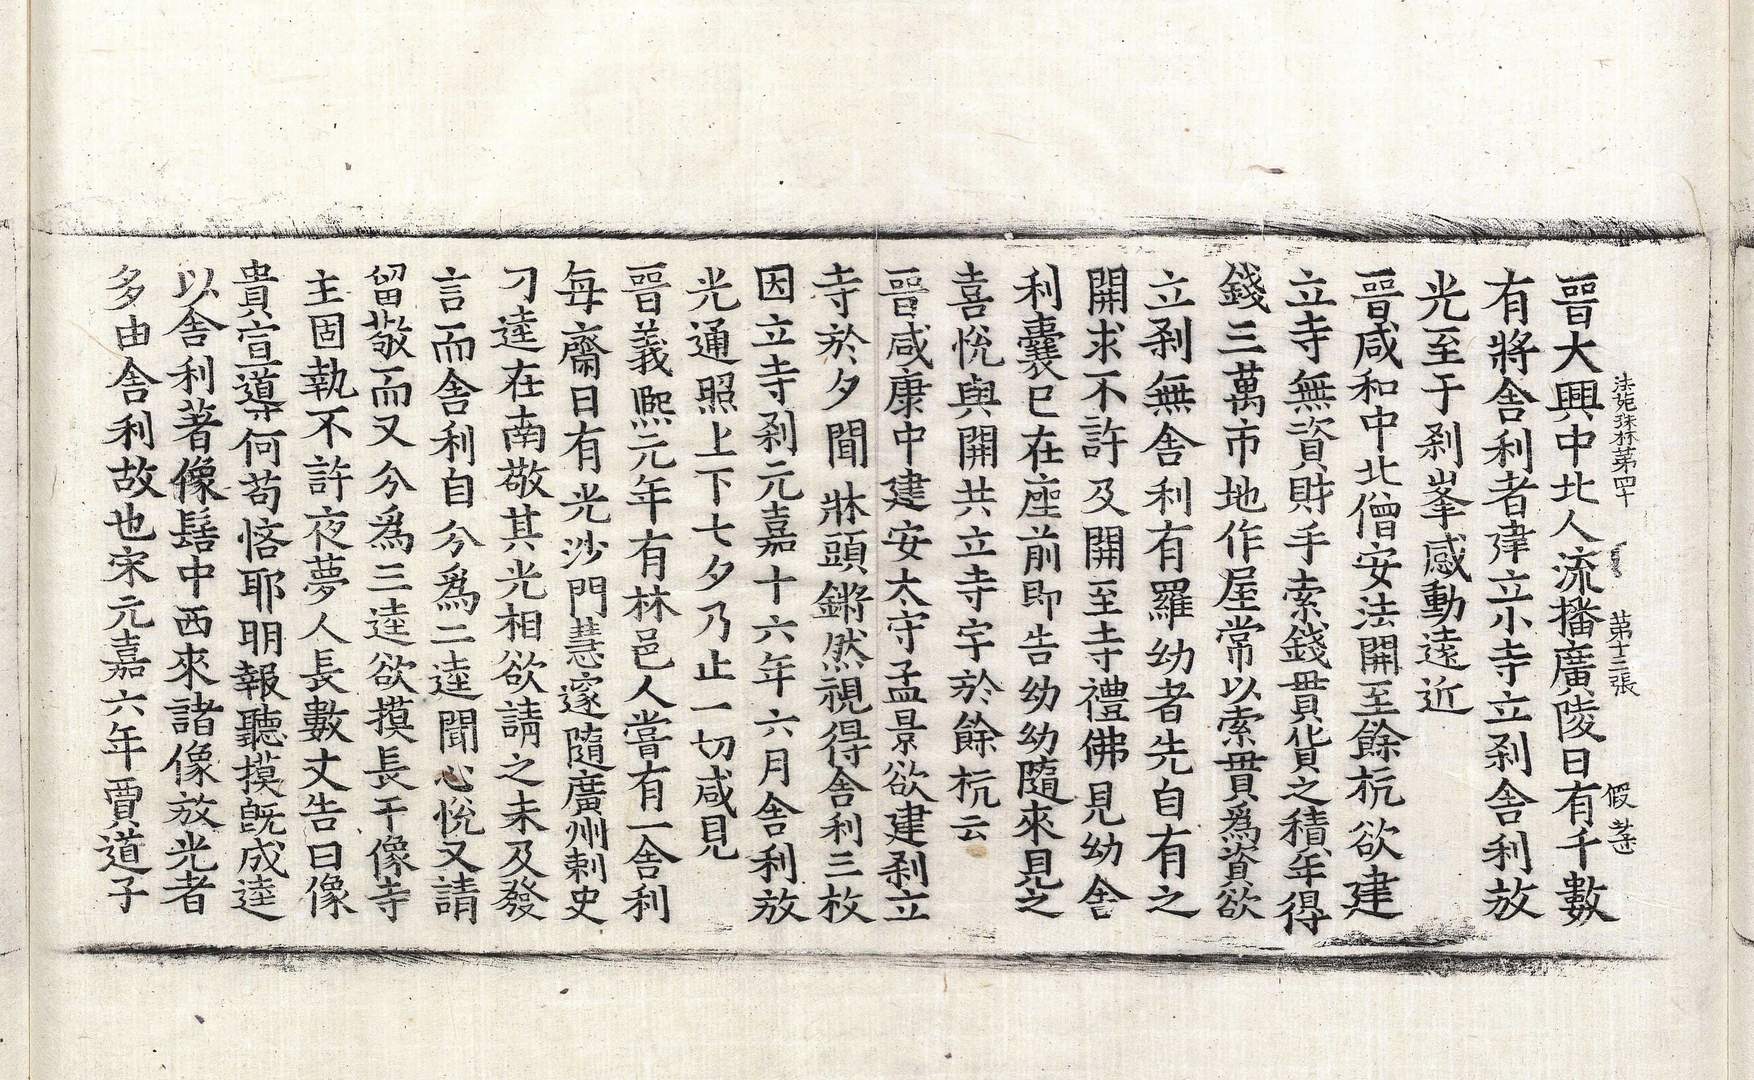 法苑珠林第四十 第十三張 假
晉大興中北人流播廣陵日有千數
有將舍利者建立小寺立刹舍利放
光至于刹峯感動遠近
晉咸和中北僧安法開至餘杭欲建
立寺無資財手索錢貫貨之積年得
錢三萬市地作屋常以索貫爲資欲
立刹無舍利有羅幼者先自有之
開求不許及開至寺禮佛見幼舍
利囊已在座前即告幼幼隨來見之
喜悅與開共立寺宇於餘杭云
晉咸康中建安太守孟景欲建刹立
寺於夕聞牀頭鏘然視得舍利三枚
因立寺刹元嘉十六年六月舍利放
光通照上下七夕乃止一切咸見
晉義熙元年有林邑人嘗有一舍利
每齋日有光沙門慧邃隨廣州刺史
刁逵在南敬其光相欲請之未及發
言而舍利自分爲二逵聞心悅又請
留敬而又分爲三逵欲摸長干像寺
主固執不許夜夢人長數丈告曰像
貴宣導何苟悋耶明報聽摸旣成逵
以舍利著像髻中西來諸像放光者
多由舍利故也宋元嘉六年賈道子